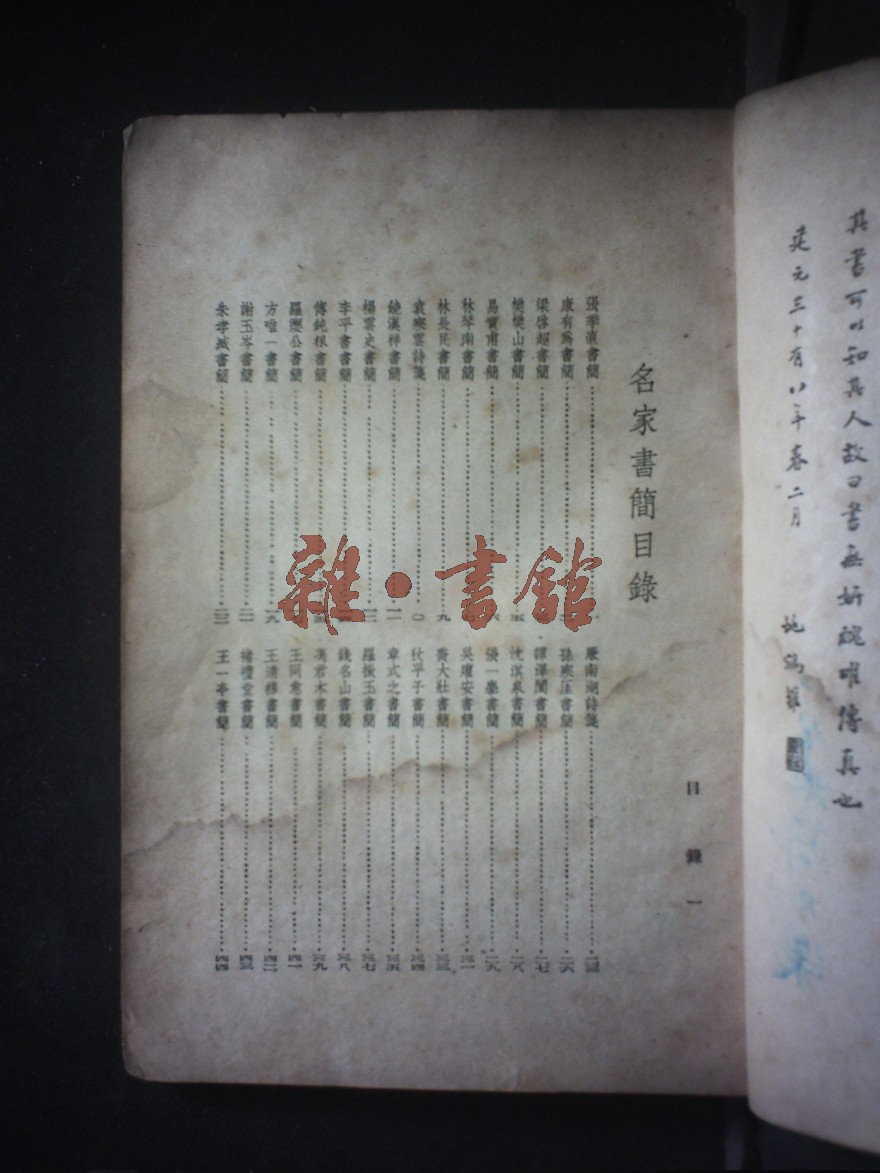 其書可以知其人故曰書無妍醜唯傳真也
建元三十有八年春二月
施鴻雛
名家書簡目錄
張季直書簡
康有為書簡
梁啓超書簡
樊樊山書簡
易實甫書簡
林琴南書簡
林長民書簡 九
袁寒雲詩箋 一〇
饒漢祥書簡 一一
楊雲史書簡
李平書書簡
傅鈍根書簡
羅癭公書簡
方唯一書簡 一九
謝玉岑書簡
朱孝臧書簡
廉南湖詩箋
孫寒厓書簡 二六
譚澤闓書簡 二七
沈淇泉書簡 二八
張一麐書簡 二九
吳癯安書簡 三一
喬大壯書簡 三三
狄平子書簡 三四
章式之書簡 三五
羅振玉書簡 三七
錢名山書簡 三八
馮君木書簡 三九
王同愈書簡 四一
王清穆書簡 四二
褚禮堂書簡 四三
王一亭書簡 四四
目錄 一
雜·書館